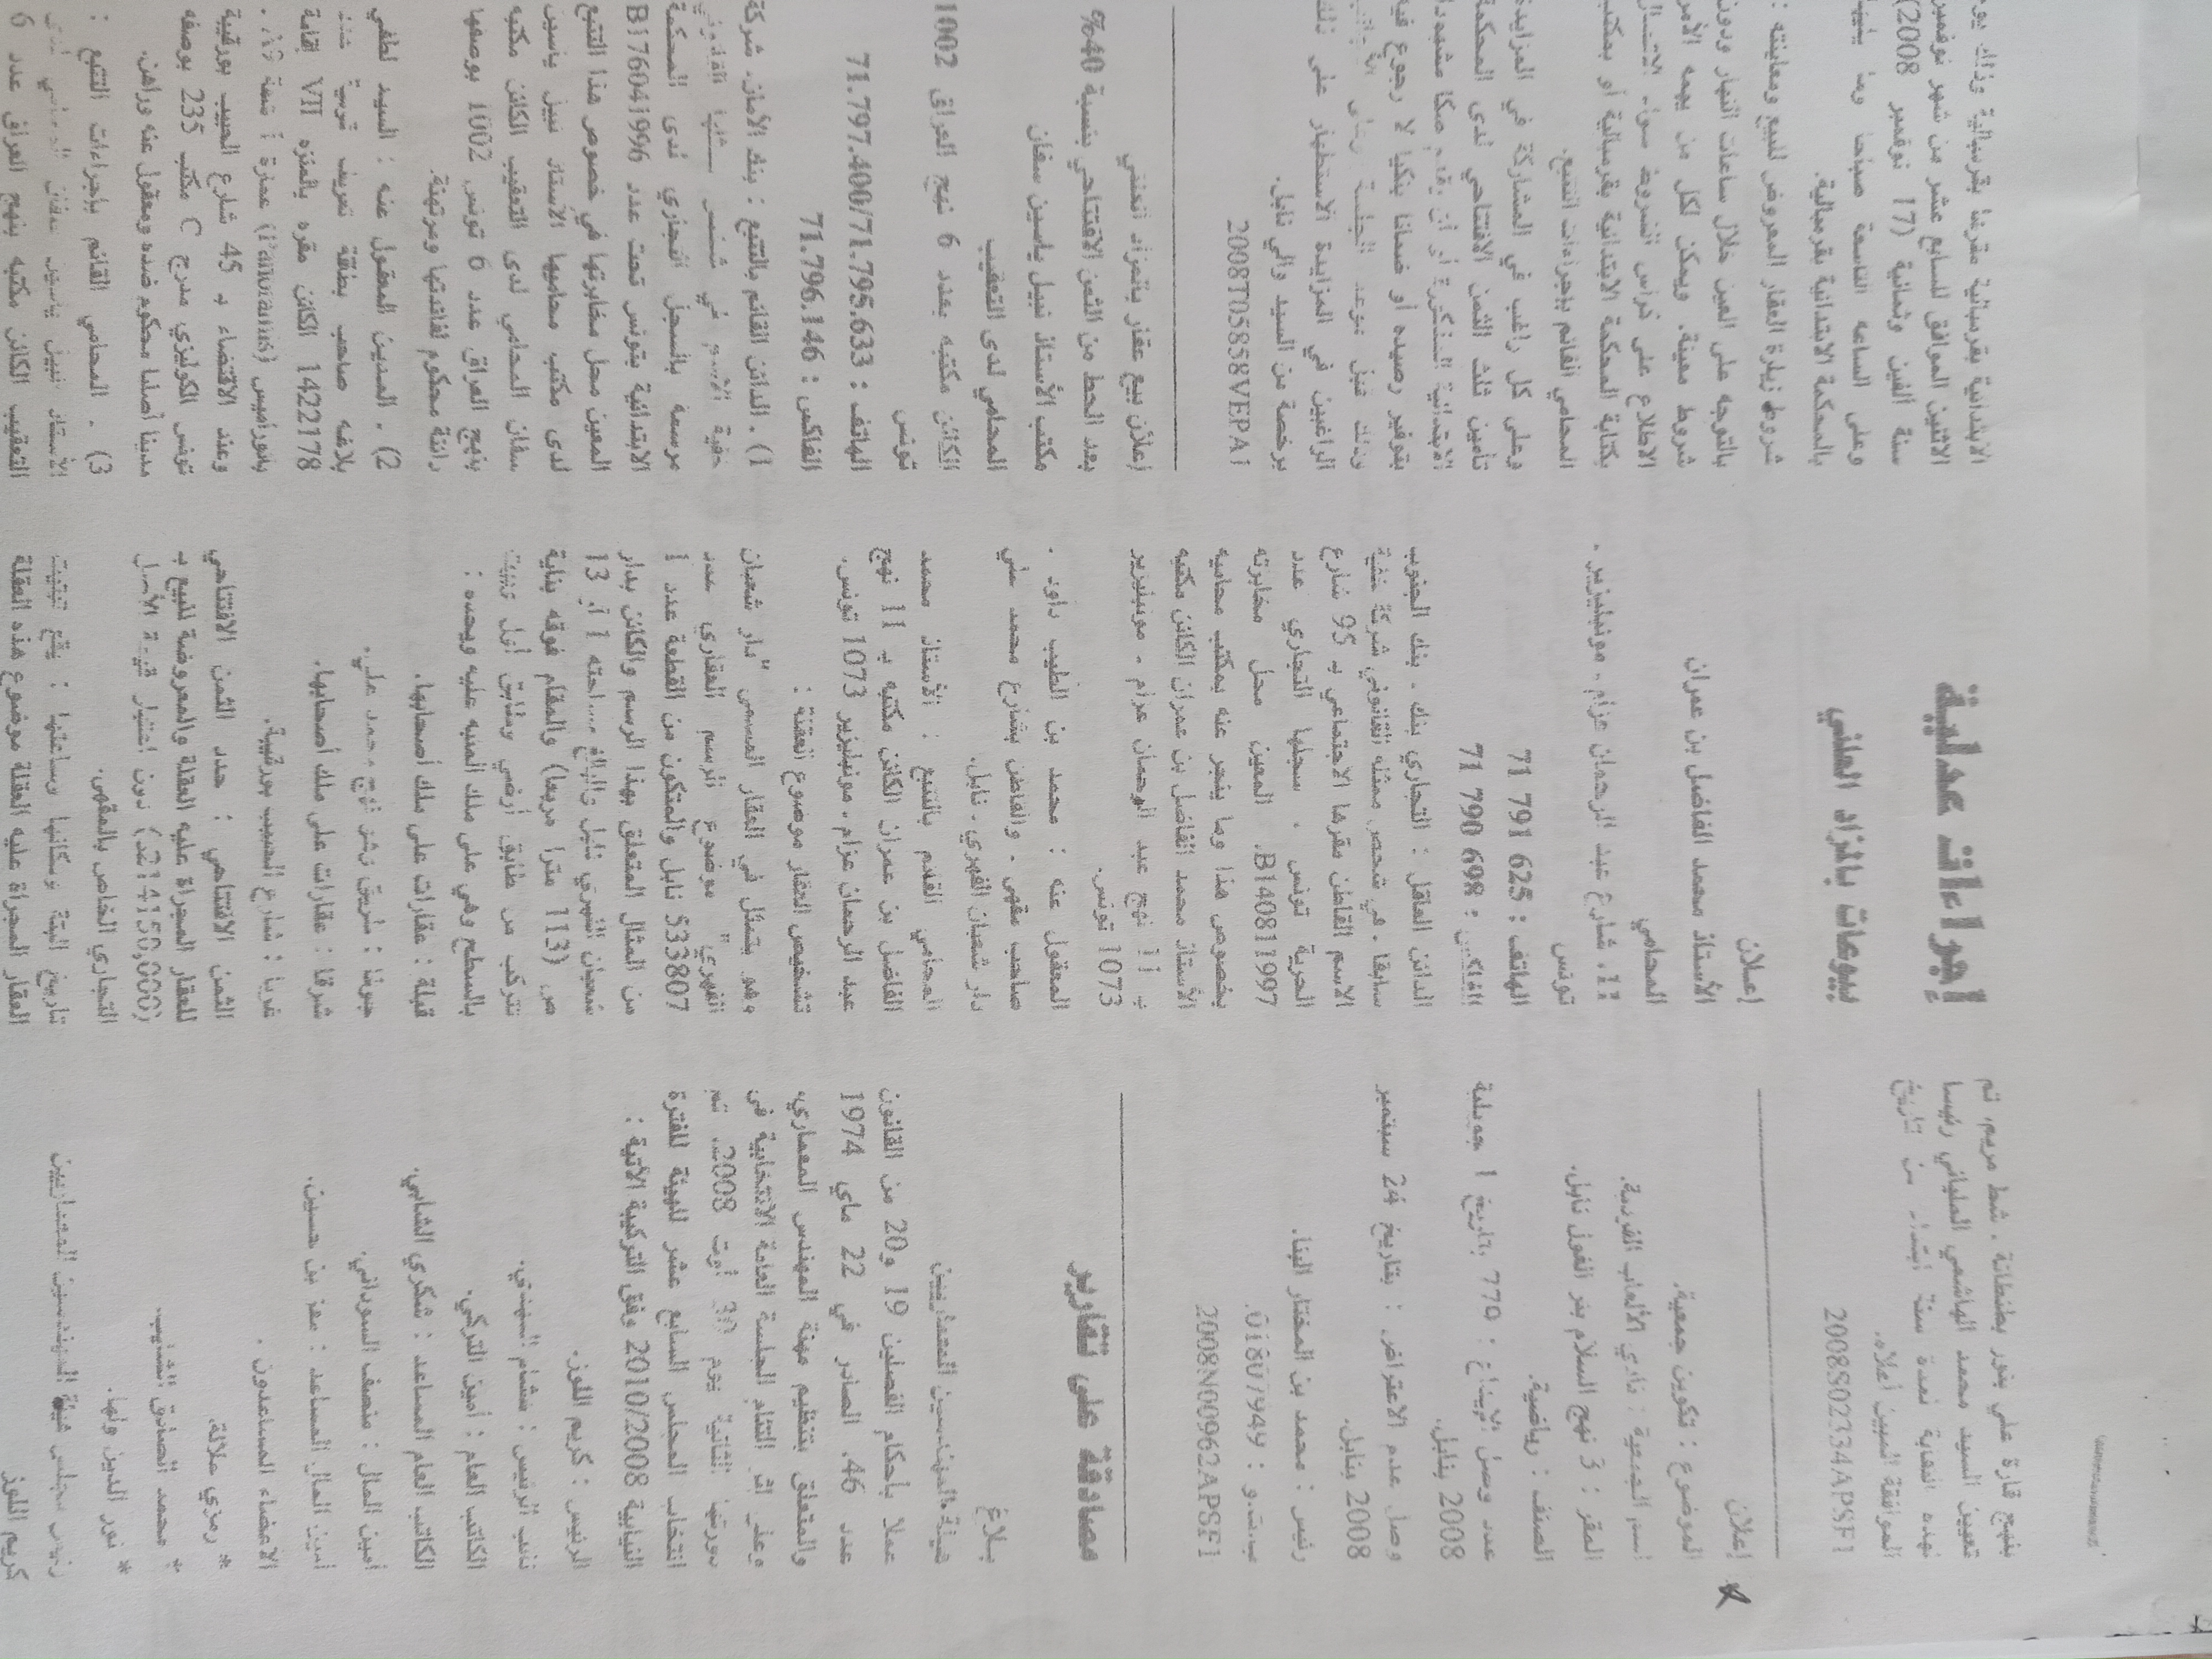 بنهج قارة علي بنور بطنطانة . شط مريم، تم
تعيين السيد محمد الهاشمي الملياني رئيسا
لهذه النقابة لمدة سنة ابتداء من تاريخ
الموافقة المبين أعلاه.
2008S02334APSF1
إعلان
الموضوع : تكوين جمعية.
اسم الجمعية : نادي الألعاب الفردية.
المقر : 3 نهج السلام بئر الفول نابل.
الصنف : رياضية.
عدد وصل الإيداع : 779 بتاريخ 1 جويلية
2008 بنابل.
وصل عدم الاعتراض : بتاريخ 24 سبتمبر
2008 بنابل.
رئيس : محمد بن المختار البنا.
ب.ت.و : 01807949.
2008N00962APSF1
مصادقة على تقارير
بلاغ
هيئة المهندسين المعماريين
عملا بأحكام الفصلين 19 و20 من القانون
عدد 46. الصادر في 22 ماي 1974
والمتعلق بتنظيم مهنة المهندس المعماري،
وعلى إثر التئام الجلسة العامة الانتخابية في
دورتها الثانية يوم 30 أوت 2008. تم
انتخاب المجلس السابع عشر للهيئة للفترة
النيابية 2010/2008 وفق التركيبة الآتية :
الرئيس : كريم اللوز.
نائب الرئيس : هشام المهدي.
الكاتب العام : أمين التركي.
الكاتب العام المساعد : شكري الشابي.
أمين المال : منصف السوداني.
أمين المال المساعد : معز بن حسين.
الأعضاء المساعدون .
* رمزي علالة.
* محمد الصادق الشايب.
* نور الدين ولها.
رئيس مجلس هيئة المهندسين المعماريين
كريم اللوز
إجراءات عدلية
بيوعات بالمزاد العلني
إعلان
الأستاذ محمد الفاضل بن عمران
المحامي
11. شارع عبد الرحمان عزام . مونبليزير .
تونس
الهاتف : 625 791 71
الفاكس : 698 790 71
الدائن العاقل : التجاري بنك . بنك الجنوب
سابقا . في شخص ممثله القانوني شركة خفية
الاسم القاطن مقرها الاجتماعي بـ 95 شارع
الحرية تونس . سجلها التجاري عدد
B14081997. المعين محل مخابرته
بخصوص هذا وما ينجر عنه بمكتب محاميه
الأستاذ محمد الفاضل بن عمران الكائن مكتبه
بـ 11 نهج عبد الرحمان عزام . مونبليزير
1073 تونس.
المعقول عنه : محمد بن الطيب داود .
صاحب مقهى . والقاطن بشارع محمد علي
دار شعبان الفهري . نابل.
المحامي القائم بالتتبع : الأستاذ محمد
الفاضل بن عمران الكائن مكتبه بـ 11 نهج
عبد الرحمان عزام . مونبليزير 1073 تونس.
تشخيص العقار موضوع العقلة :
وهو يتمثل في العقار المسمى "دار شعبان
الفهري" موضوع الرسم العقاري عدد
533807 نابل والمتكون من القطعة عدد 1
من المثال المتعلق بهذا الرسم والكائن بدار
شعبان الفهري نابل والبالغ مساحته 1 آ. 13
ص (113 مترا مربعا) والمقام فوقه بناية
تتركب من طابق أرضي وطابق أول تنتهي
بالسطح وهي على ملك المنبه عليه ويحده :
قبلة : عقارات على ملك أصحابها.
جوفا : طريق زنقة نهج محمد علي.
شرقا : عقارات على ملك أصحابها.
غربا : شارع الحبيب بورقيبة.
الثمن الافتتاحي : حدد الثمن الافتتاحي
للعقار المجراة عليه العقلة والمعروضة للبيع بـ
(214150,000د) دون اعتبار قيمة الأصل
التجاري الخاص بالمقهى.
تاريخ البتة ومكانها وساعتها : يقع تبتيت
العقار المجراة عليه العقلة موضوع هذه العقلة
الابتدائية بقرمبالية مقرها بقرمبالية وذلك يوم
الاثنين الموافق للسابع عشر من شهر نوفمبر
سنة ألفين وثمانية (17 نوفمبر 2008)
وعلى الساعة التاسعة صباحا وما يليها
بالمحكمة الابتدائية بقرمبالية.
شروط زيارة العقار المعروض للبيع ومعاينته :
بالتوجه على العين خلال ساعات النهار ودون
شروط معينة. ويمكن لكل من يهمه الأمر
الاطلاع على كراس الشروط سواء الاتصال
بكتابة المحكمة الابتدائية بقرمبالية أو بمكتب
المحامي القائم بإجراءات التتبع.
وعلى كل راغب في المشاركة في المزايدة
تأمين ثلث الثمن الافتتاحي لدى المحكمة
الابتدائية المذكورة أو أن يقدم صكا مشهودا
بتوفير رصيده أو ضمانا بنكيا لا رجوع فيه
وذلك قبل موعد الجلسة وعلى
الراغبين في المزايدة الاستظهار على ذلك
برخصة من السيد والي نابل.
2008T05858VEPA1
إعلان بيع عقار بالمزاد العلني
بعد الحط من الثمن الافتتاحي بنسبة 40%
مكتب الأستاذ نبيل ياسين سفان
المحامي لدى التعقيب
الكائن مكتبه بعدد 6 نهج العراق 1002
تونس
الهاتف : 71.797.400/71.795.633
الفاكس : 71.796.146
1) . الدائن القائم بالتتبع : بنك الأمان. شركة
خفية الاسم في شخص ممثلها القانوني
مرسمة بالسجل التجاري لدى المحكمة
الابتدائية بتونس تحت عدد B176041996
المعين محل مخابرتها في خصوص هذا التتبع
لدى مكتب محاميها الأستاذ نبيل ياسين
سفان المحامي لدى التعقيب الكائن مكتبه
بنهج العراق عدد 6 تونس 1002 بوصفها
دائنة محكوم لفائدتها ومرتهنة.
2) . المدين المعقول عنه : السيد لطفي
بلاغه صاحب بطاقة تعريف قومية عدد
1422178 الكائن مقره بالمنزه VII إقامة
بانوراميس (Panoramis) عمارة أ شقة
وعند الاقتضاء بـ 45 شارع الحبيب بورقيبة
تونس الكوليزي مدرج C مكتب 235 بوصفه
مدينا أصليا محكوم ضده ومعقول عنه وراهن.
3) . المحامي القائم بإجراءات التتبع :
الأستاذ نبيل ياسين سفان المحامي لدى
التعقيب الكائن مكتبه بنهج العراق عدد 6